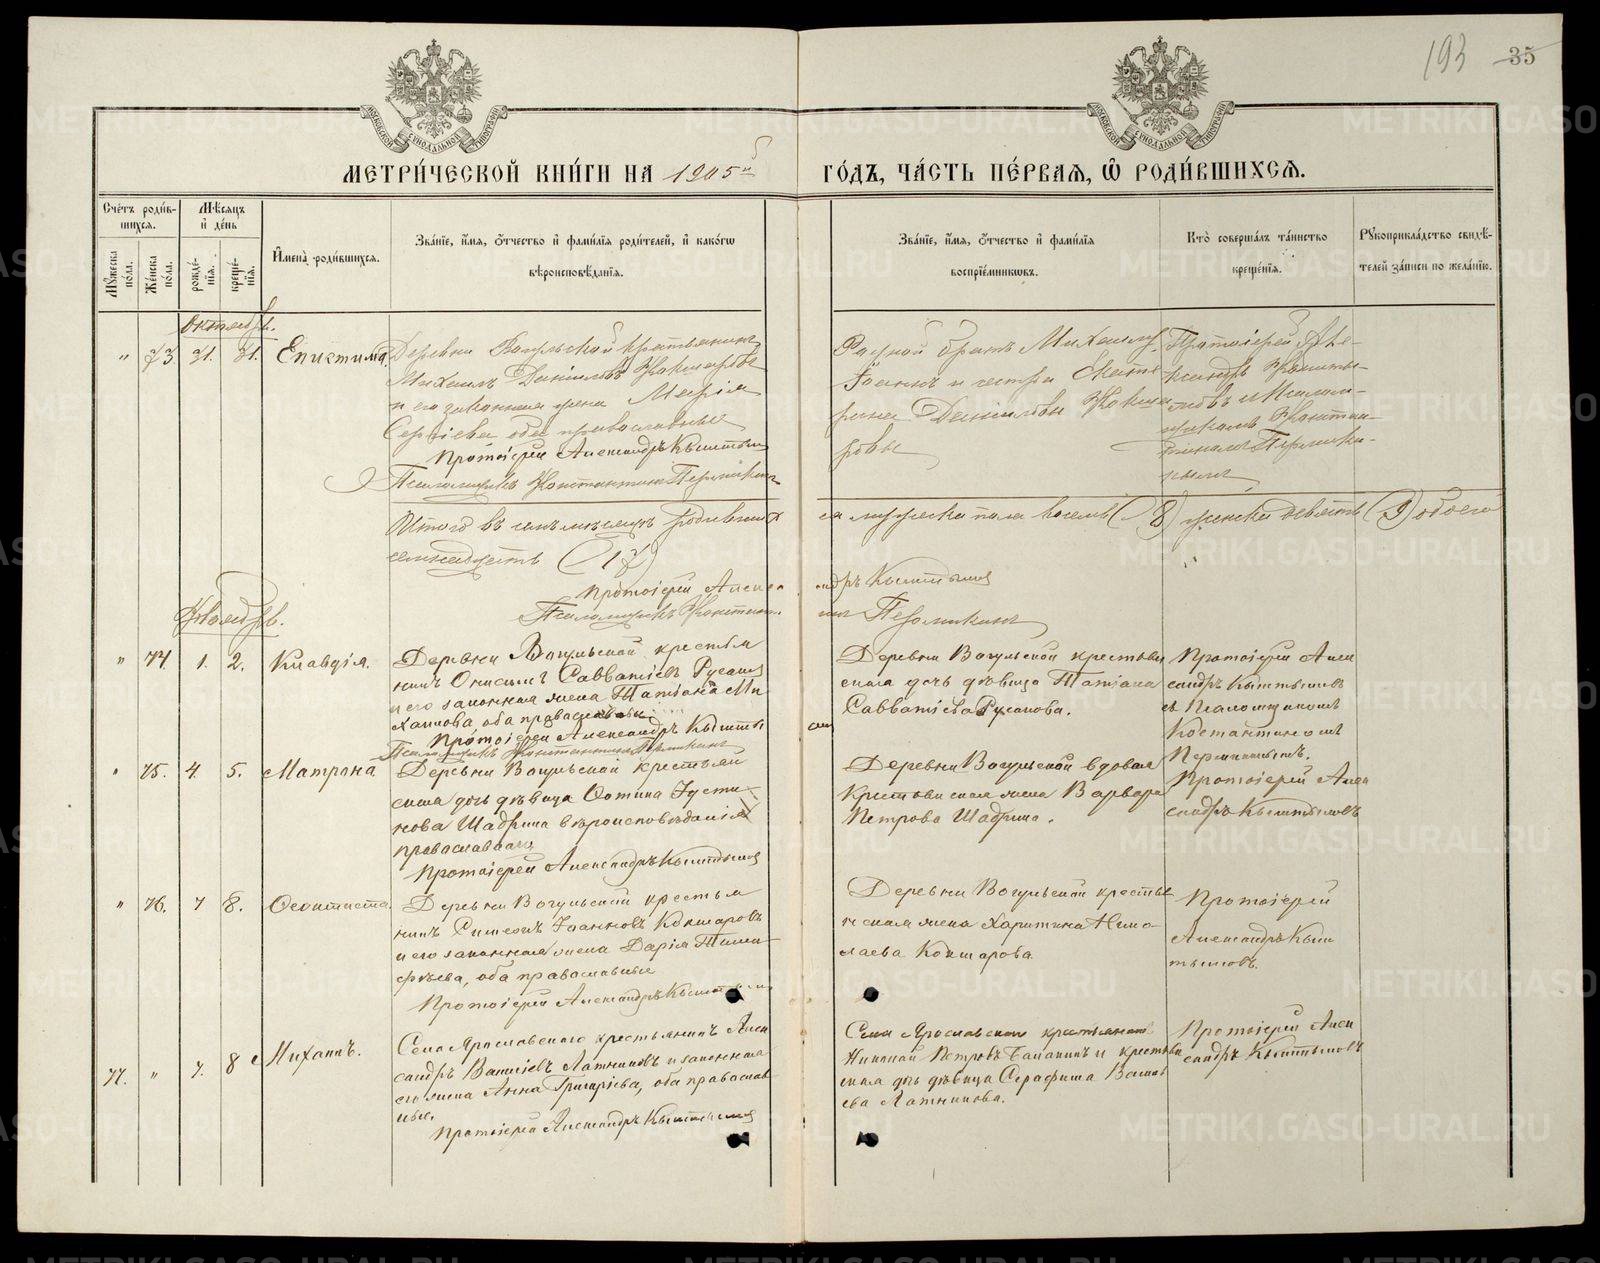 193 35
МОСКОВСКОЙ СѴНОДАЛЬНОЙ ТИПОГРАФІИ
МОСКОВСКОЙ СѴНОДАЛЬНОЙ ТИПОГРАФІИ
МЕТРИ́ЧЕСКОЙ КНИ́ГИ НА 1905й ГО́ДЪ, ЧА́СТЬ ПЕ́РВАЯ, Ѡ РОДИ́ВШИХСЯ.
Сче́тъ роди́вшихся.
Мꙋ́жеска по́ла.
Же́нска по́ла.
Мѣ́сяцъ и҆ де́нь
рожде́нїя.
креще́нїя.
И҆мена̀ роди́вшихся.
Зва́нїе, и҆́мя, ѻ҆́тчество и҆ фами́лїя роди́телей, и҆ како́гѡ вѣроисповѣ́данїя.
Зва́нїе, и҆́мя, ѻ҆́тчество и҆ фами́лїя воспрїе́мникѡвъ.
Кто̀ соверша́лъ та́инство креще́нїя.
Рꙋкоприкла́дство свидѣ́телей за́писи по жела́нїю.
Октябрь.
" 73 31. 31. Епистима.
Деревни Вогульской крестьянинъ
Михаилъ Даніиловъ Кокшаровъ
и его законная жена Марія
Сергіева, оба православные
Протоіерей Александръ Кыштымовъ
Псаломщикъ Константинъ Пермикинъ
Родной братъ Михаилу,
Іоаннъ и сестра Екате
рина Даниловы Кокша
ровы
Протоіерей Але-
ксандръ Кышты-
мовъ съ Псалом-
щикомъ Констан-
тиномъ Пермики-
нымъ
Итого въ семъ мѣсяцѣ родивших ся мужеска пола восемь (8) женска девять (9) обоего
семнадцать (17)
Протоіерей Александръ Кыштымовъ
Псаломщикъ Константинъ Пермикинъ
Ноябрь.
" 74. 1. 2. Клавдія.
Деревни Вогульской крестья
нинъ Онисимъ Савватіевъ Русановъ
и его законная жена Татіана Ми
хаилова, оба православные
Протоіерей Александръ Кышты
Псаломщикъ Константинъ Пермикинъ
Деревни Вогульской крестьян
ская дочь дѣвица Татіана
Савватіева Русанова.
Протоіерей Алек
сандръ Кыштымовъ
съ Псаломщикомъ
Костантиномъ
Пермикинымъ.
" 75. 4. 5. Матрона
Деревни Вогульской крестьян
ская дочь дѣвица Фотина Іусти
нова Шадрина вѣроисповѣданія
православнаго
Протоіерей Александръ Кыштымовъ
Деревни Вогульской вдовая
Крестьянская жена Варвара
Петрова Шадрина.
Протоіерей Алек
сандръ Кыштымовъ
" 76. 7 8. Феоктиста.
Деревни Вогульской крестья
нинъ Симеонъ Іоанновъ Кокшаровъ
и его законная жена Дарія Тимо
феева, оба православные
Протоіерей Александръ Кыштымовъ
Деревни Вогульской крестья
нская жена Харитина Нико
лаева Кокшарова
Протоіерей
Александръ Кыш
тымовъ.
77. " 7. 8 Михаилъ.
Села Ярославскаго крестьянинъ Алек
сандръ Василіевъ Латниковъ и законная
его жена Анна Григоріева, оба православ
ные.
Протоіерей Александръ Кыштымовъ
Села Ярославскаго крестьянинъ
Николай Петровъ и крестьян
ская дочь дѣвица Серафима Васил
ева Латникова.
Протоіерей Алек
сандръ Кыштымовъ
METRIKI.GASO-URAL.RU